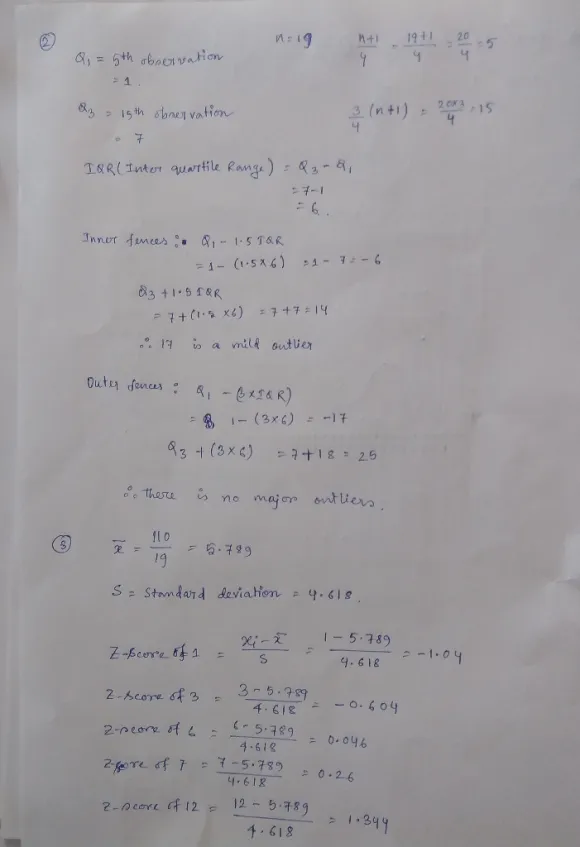 ② n = 19 n+1/4 = 19+1/4 = 20/4 = 5
Q₁ = 5th observation
= 1.
Q₃ = 15th observation 3/4 (n+1) = 20×3/4 = 15
= 7
IQR (Inter quartile Range) = Q₃ - Q₁
= 7-1
= 6.
Inner fences : Q₁ - 1.5 IQR
= 1 - (1.5×6) = 1 - 7 = -6
Q₃ + 1.5 IQR
= 7+(1.5 ×6) = 7+7 = 14
∴ 17 is a mild outlier
Outer fences : Q₁ - (3×IQR)
= 1 - (3×6) = -17
Q₃ + (3×6) = 7+18 = 25
∴ There is no major outliers.
③ x̄ = 110/19 = 5.789
S = Standard deviation = 4.618.
Z-score of 1 = xᵢ - x̄/S = 1 - 5.789/4.618 = -1.04
Z-score of 3 = 3 - 5.789/4.618 = -0.604
Z-score of 6 = 6 - 5.789/4.618 = 0.046
Z-score of 7 = 7 - 5.789/4.618 = 0.26
Z-score of 12 = 12 - 5.789/4.618 = 1.344